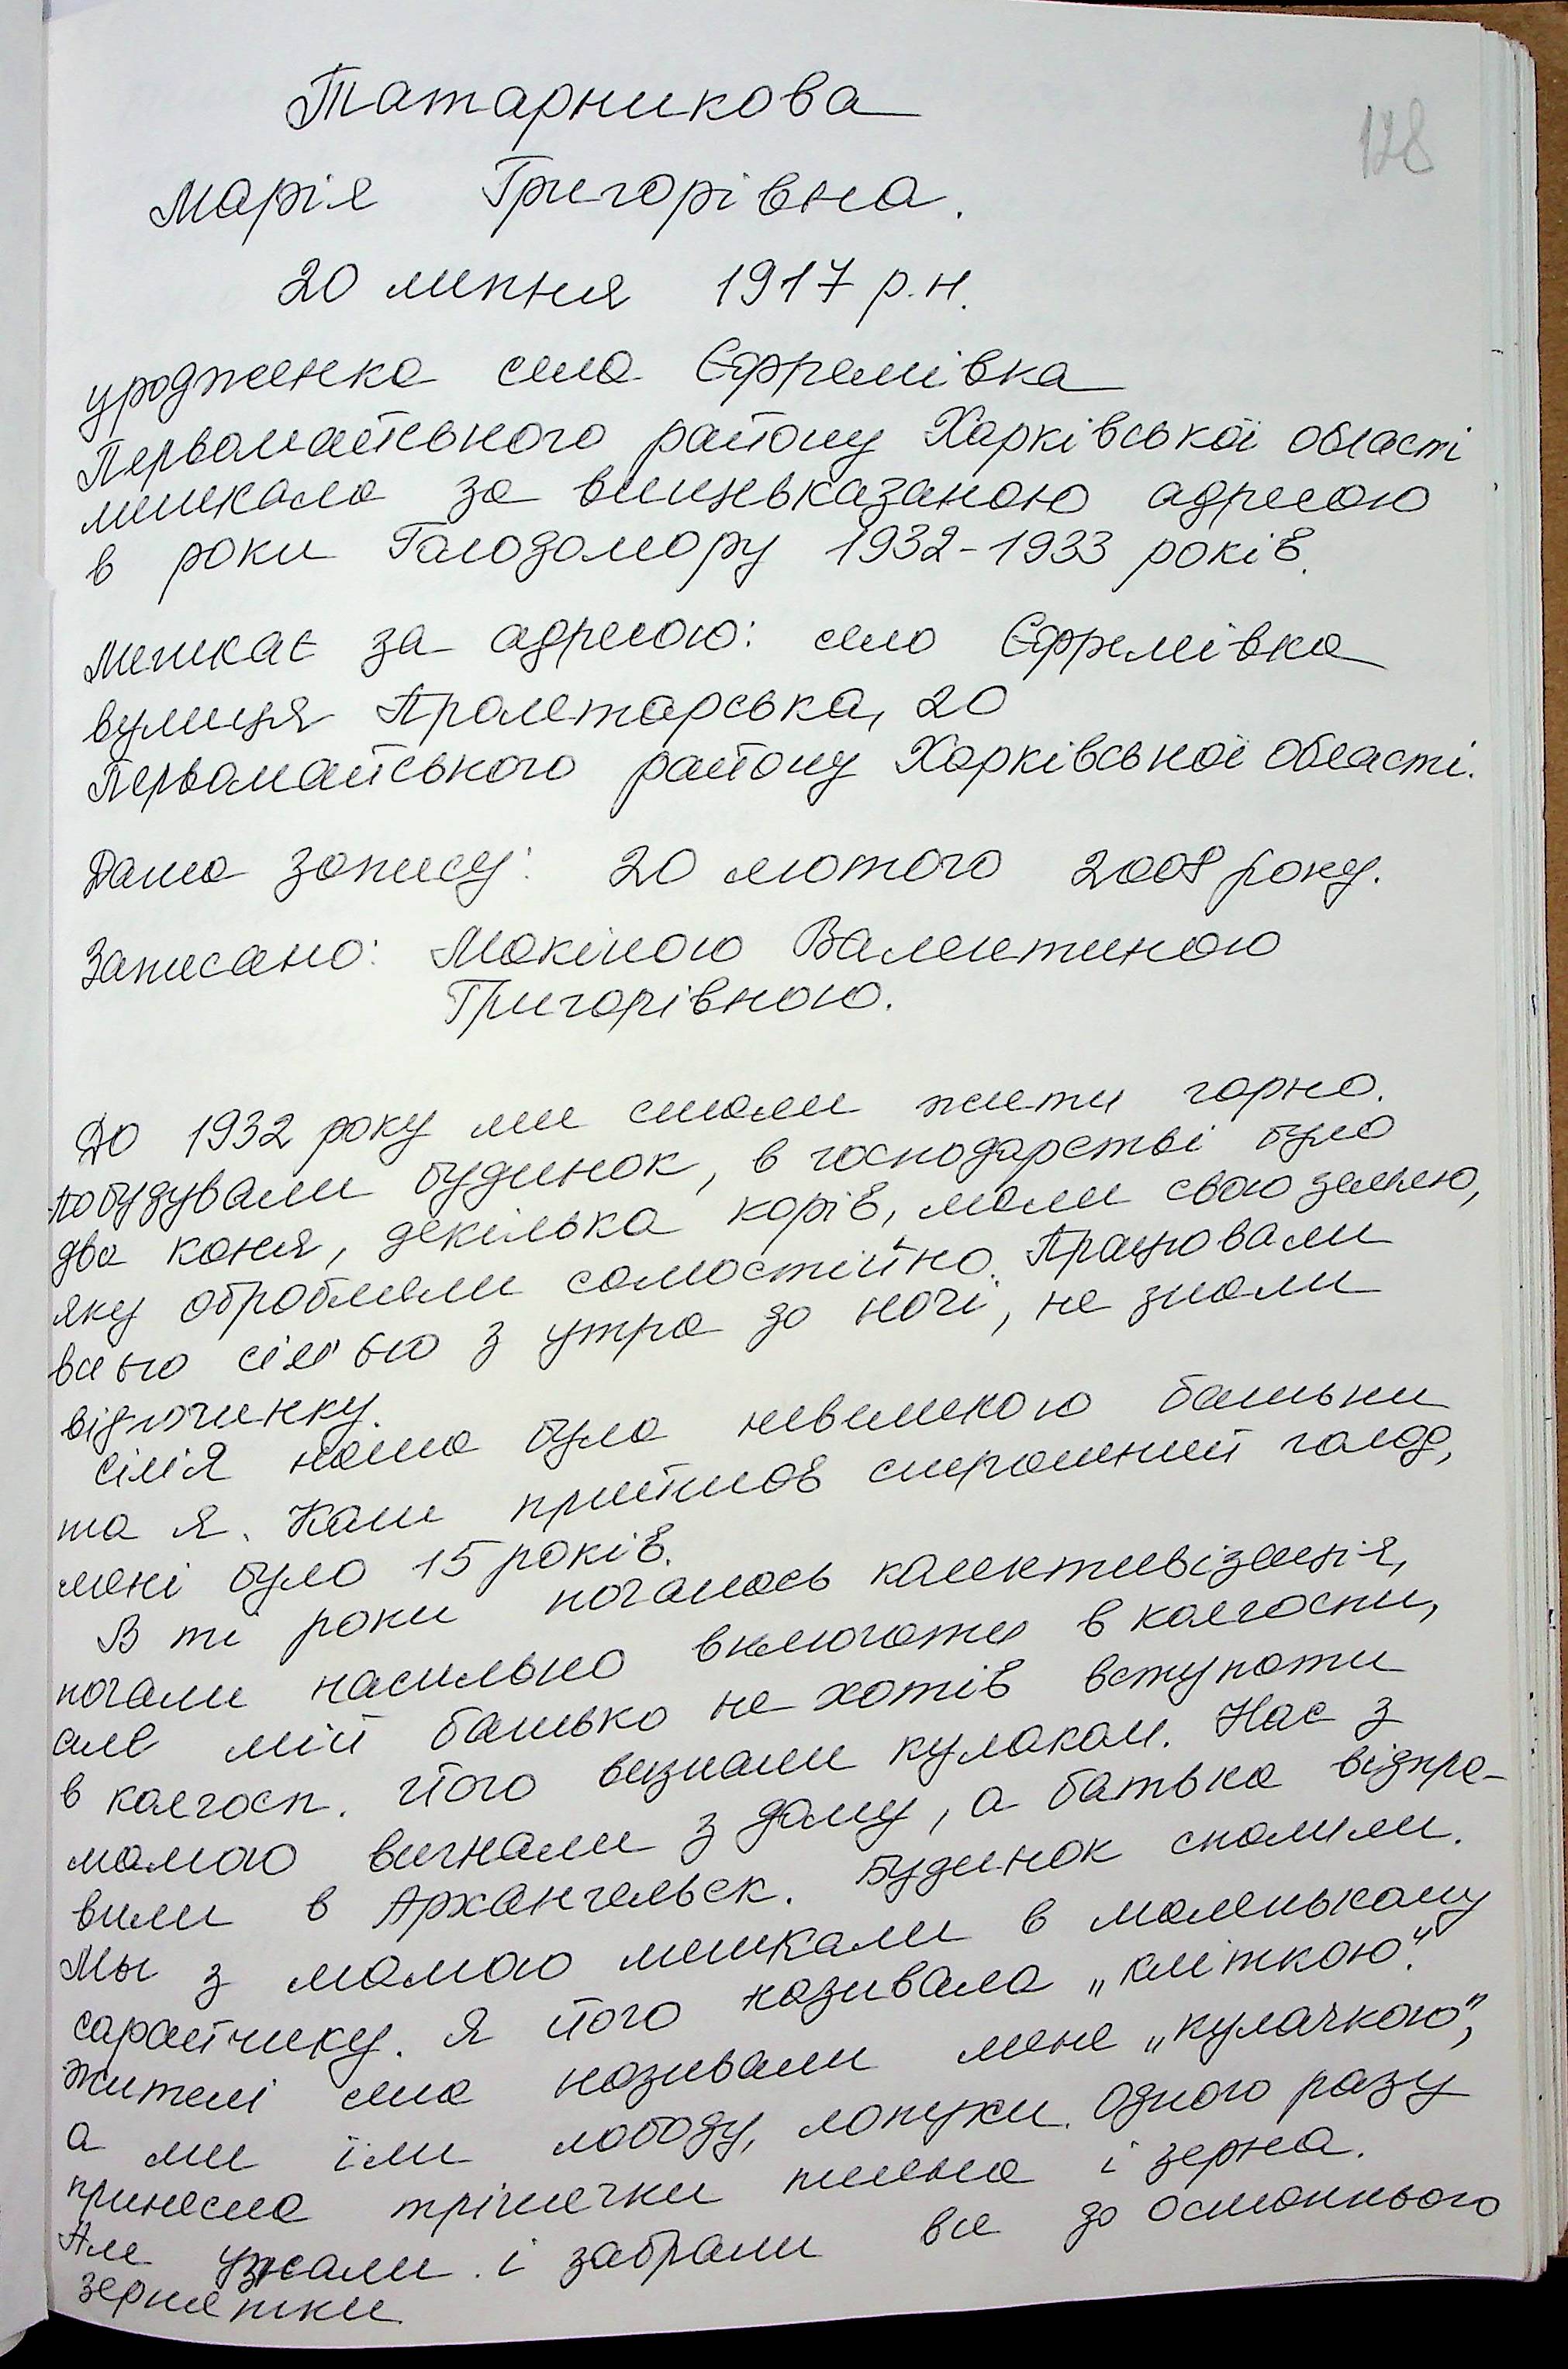 128
Татарникова
Марія Григорівна.
20 липня 1917 р.н.
уродженка села Єфремівка
Первомайського району Харківської області
мешкала за вищевказаною адресою
в роки Голодомору 1932-1933 років.
Мешкає за адресою: село Єфремівка
вулиця Пролетарська, 20
Первомайського району Харківської області.
Дата запису: 20 лютого 2008 року.
Записано: Мокіною Валентиною
Григорівною.
До 1932 року ми стали жити гарно.
Побудували будинок, в господарстві було
два коня, декілька корів, мали свою землю,
яку обробляли самостійно. Працювали
всією сім'ью з утра до ночі, не знали
відпочинку.
Сім'я наша була невеликою батьки
та я. Коли прийшов страшний голод,
мені було 15 років.
В ті роки почалась колективізація,
почали насильно включати в колгоспи,
але мій батько не хотів вступати
в колгосп. Його визнали кулаком. Нас з
мамою вигнали з дому, а батька відпра-
вили в Архангельск. Будинок спалили.
Мы з мамою мешкали в маленькому
сарайчику. Я його називала „кліткою".
Жителі села називали мене „кулачкою",
а ми їли лободу, лопухи. Одного разу
принесла трішечки пшена і зерна.
Але узнали і забрали все до останнього
зернятки.